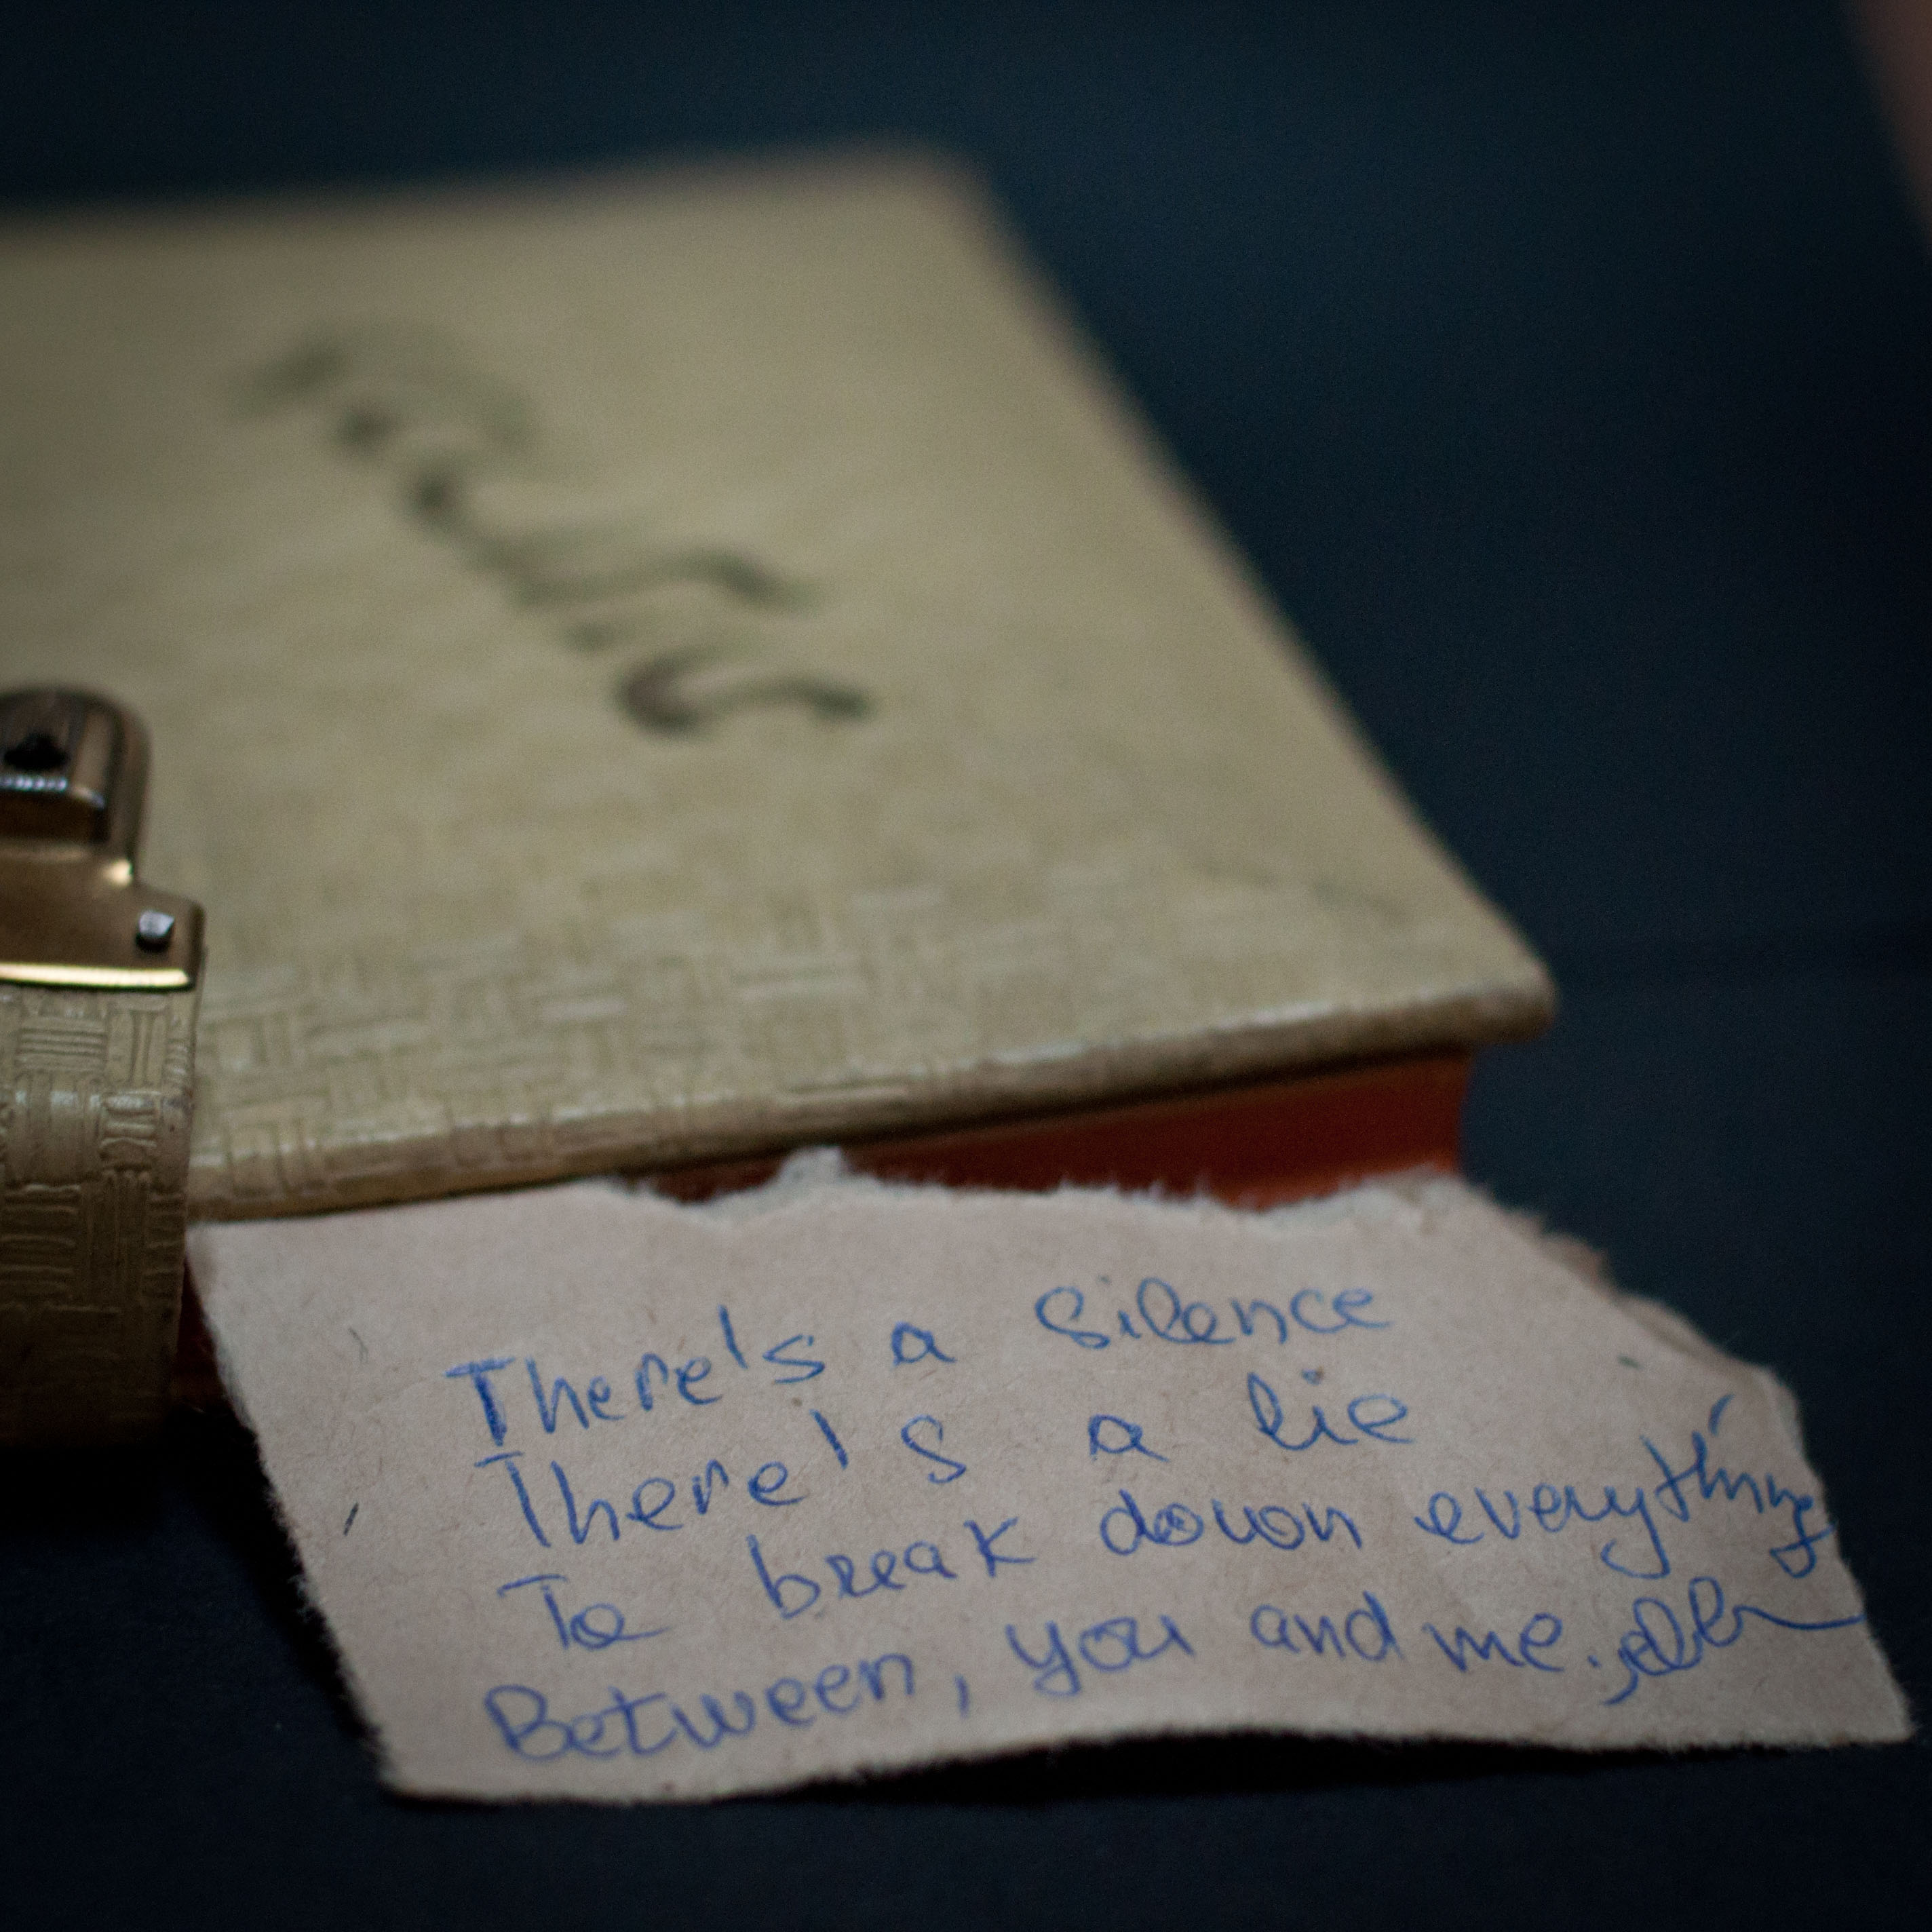 There's a silence
There's a lie
To break down everything
Between, you and me.